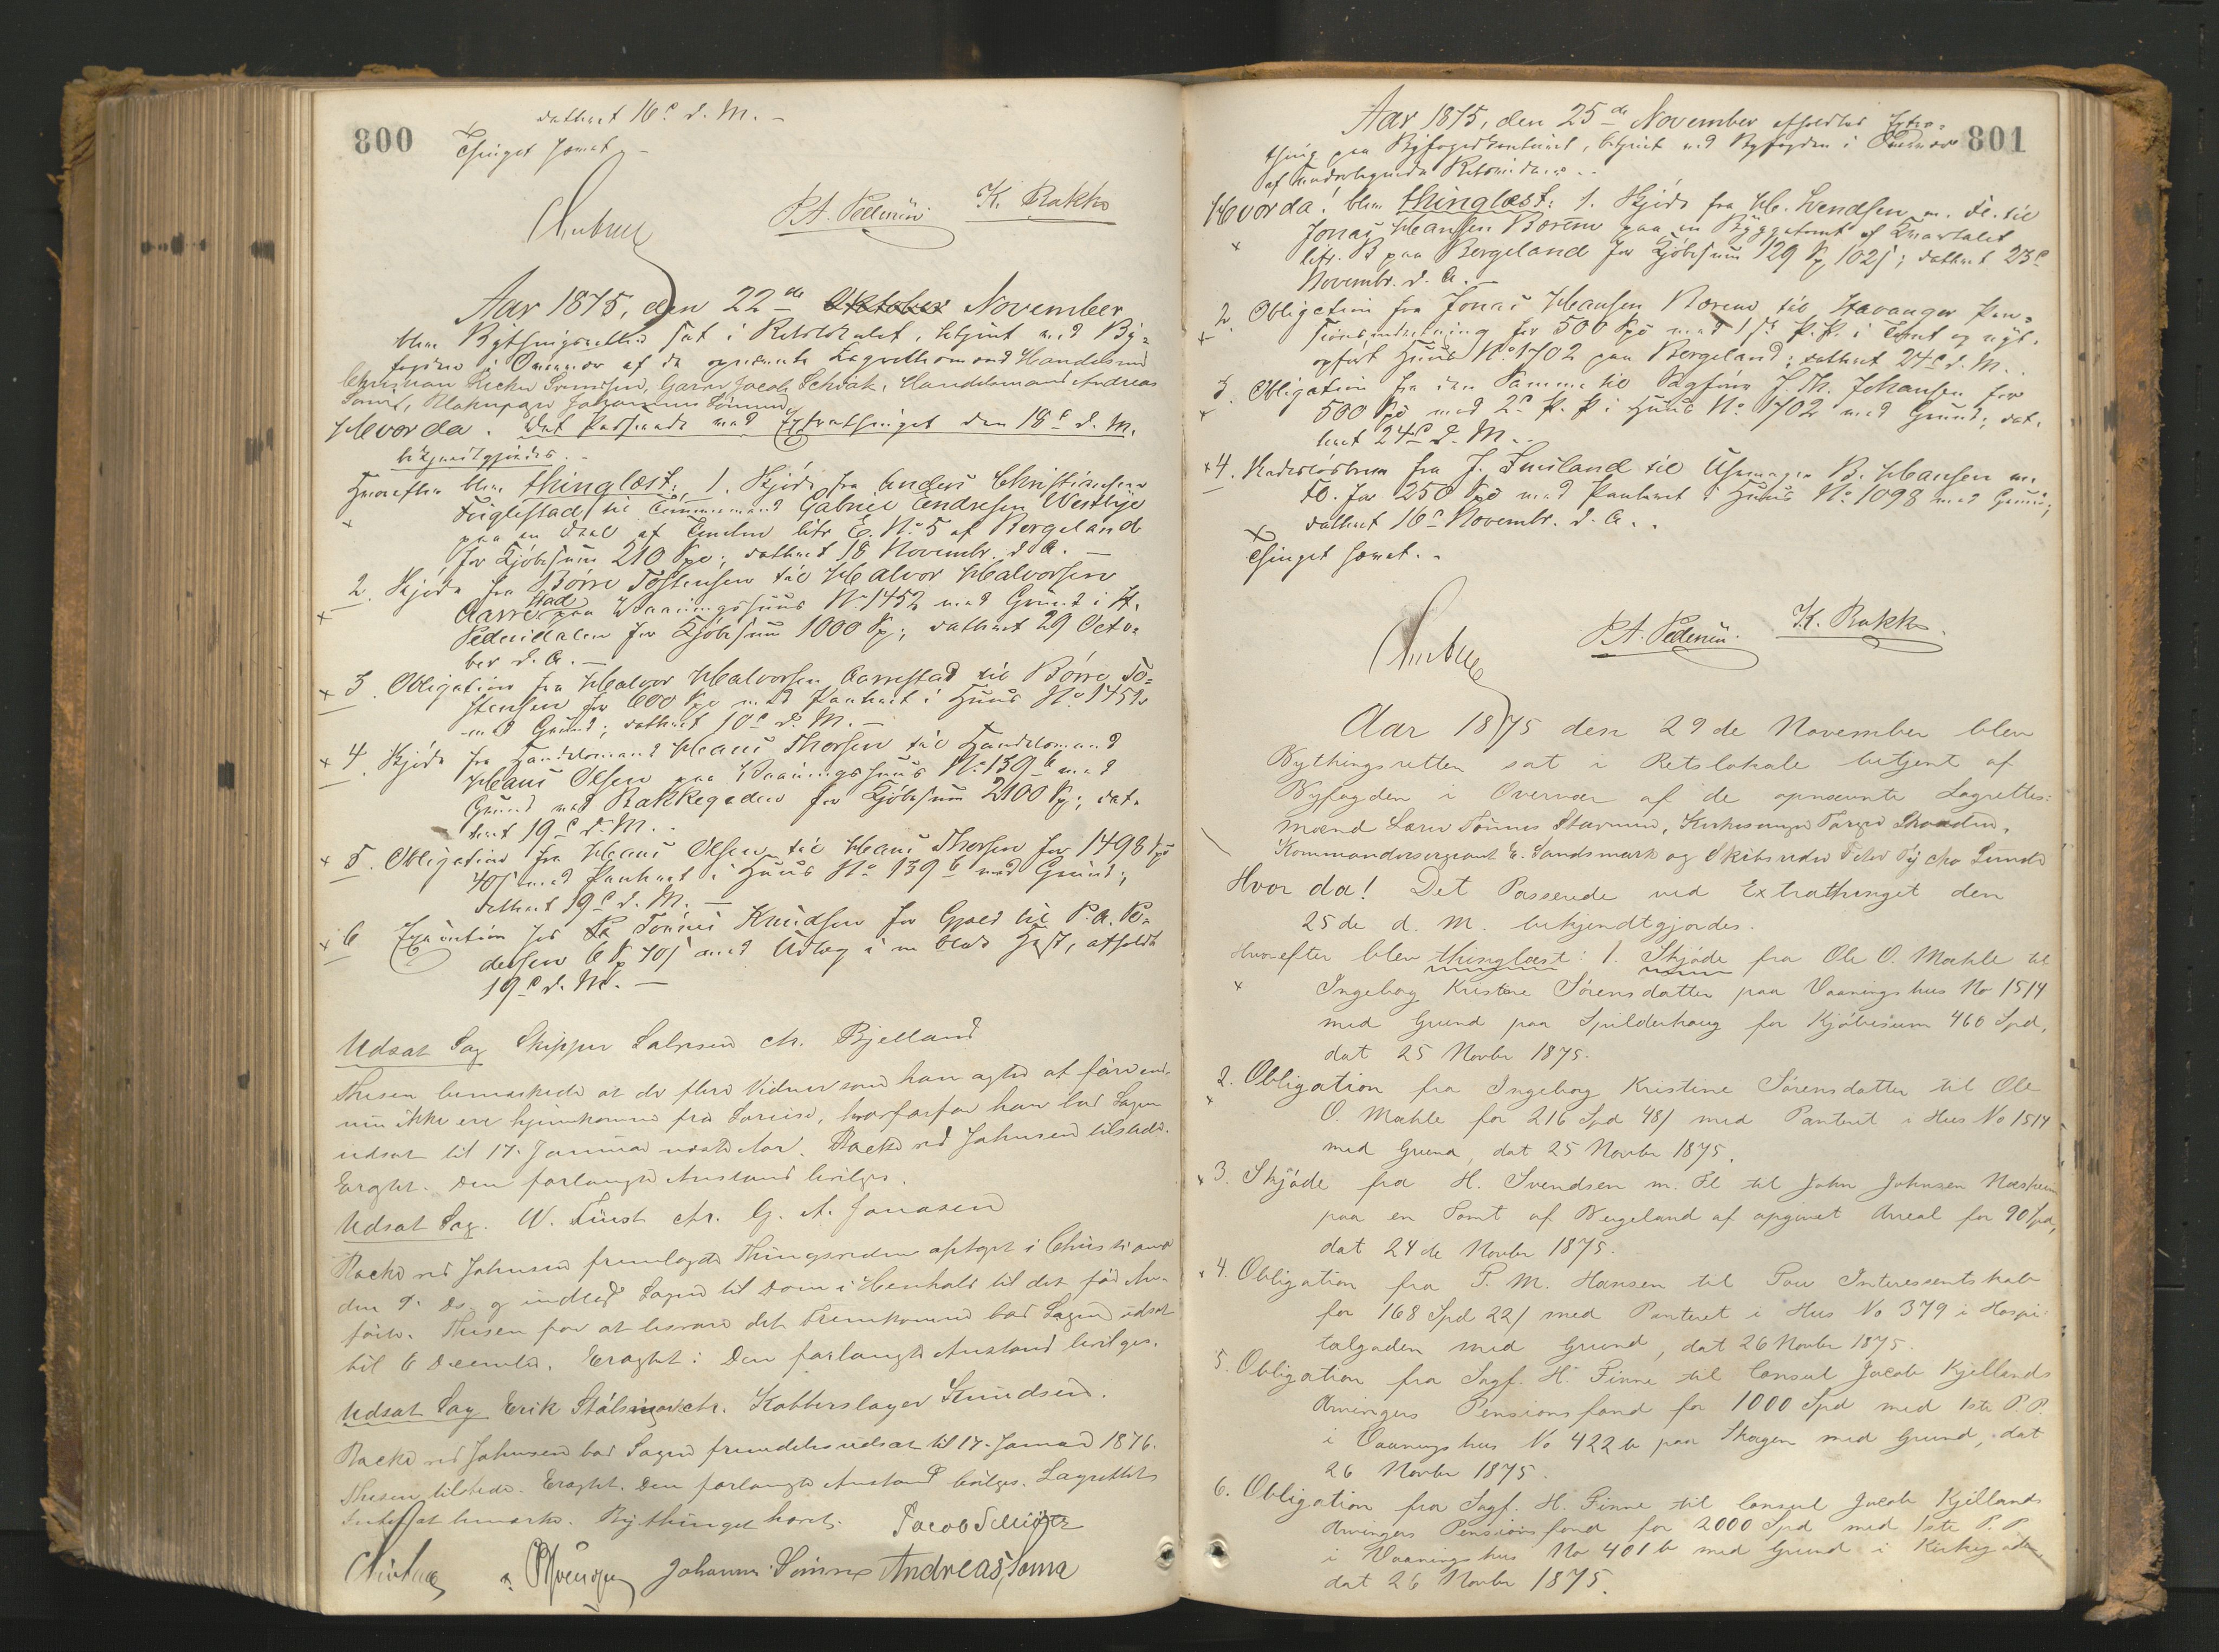 800
dateret 16de d. M. –
Thinget hævet. –
P. A. Pedersen K. Bakke
Aar 1875, den 22de Oktober November
blev Bythingsretten sat i Retslokalet, betjent med By-
fogden i Overvær af de opnævnte Lagrettesmænd Handelsmand
Christian Svendsen, Garver Jacob Schiøtz, Handelsmand Andreas
Soma, Johannes Sömme,
Hvor da. Det Passerede ved Extrathinget den 18de d. M.
bekjendtgjordes. –
Hvorefter blev thinglæst: 1. Skjöde fra Anders Christiansen
Fuglestad til Gabriel Endresen Westbye
paa en Deel af Litr. E. No 5 af Bergeland
for Kjöbesum 210 Spd; dateret 18 Novembr. d. A. –
2. Skjöde fra Börre Tostensen til Halvor Halvorsen
Aarrestad paa Vaaningshuus No 1452 med Grund i St.
Pedersdalen for Kjöbesum 1000 Sp; dateret 29 Octo-
ber d. A. –
3. Obligation fra Halvor Halvorsen Aarrestad til Börre To-
stensen for 600 Spd med Panteret i Huus No 1452
med Grund; dateret 10de d. M. –
4. Skjöde fra Handelsmand Hans Thorsen til Handelsmand
Hans Olsen paa Vaaningshuus No 139b med
Grund ved Bakkegaden for Kjöbesum 2100 Sp; dat-
teret 19de d. M. –
5. Obligation fra Hans Olsen til Hans Thorsen for 1498 Spd
40ß med Panteret i Huus No 139b med Grund;
dateret 19de d. M. –
6 Execution hos Tönnes Knudsen for Gjæld til P. A. Pe-
dersen 6 Sp 70ß med Udlæg i en Hest, afholdt
19de d. M. –
Udsat Sag Skipper Salvesen ctr. Bjelland
Thesen bemærkede at de flere Vidner som han agter at före end-
nu ikke ere hjemkomne fra Söreise, hvorfor han bad Sagen
udsat til 17. Januar næste Aar. Racke ved Johnsen tilstede.
Eragtet. Den forlangte Anstand bevilges.
Udsat Sag. W. Fürst ctr. G. A. Jonasen
Racke ved Johnsen fremlagde Thingsvidne optaget i Christiansand
den 9. Ds. og indlod Sagen til Dom i Henhold til det för An-
förte. Thesen for at besvare det Fremkomne bad Sagen udsat
til 6 December. Eragtet: Den forlangte Anstand bevilges.
Udsat Sag Erik ctr. Kobberslager Knudsen.
Racke ved Johnsen bad Sagen fremdeles udsat til 17. Januar 1876.
Thesen tilstede. Eragtet. Den forlangte Anstand bevilges. Lagrettet
Intet at bemærke. Bythinget hævet. Jacob Schiøtz
Johannes Sömme Andreas Soma
801
Aar 1875, den 25de November afholdtes Extra-
thing paa Byfogedkontoret, betjent ved Byfogden i Overvær
af undertegnede Retsvidner. –
Hvorda! blev thinglæst: 1. Skjöde fra H. Svendsen m. Fl. til
Jonas Hansen Borene paa en Byggetomt af Kvartalet
Litr. B paa Bergeland for Kjöbesum 129 Sp 102ß; dateret 23de
Novembr. d. A. –
2. Obligation fra Jonas Hansen Borene til Stavanger Pen-
sionsindretning for 500 Spd med 1ste P. P. i Tomt og nyt-
opfört Huus No 1702 paa Bergeland; dateret 24de d. M.
3. Obligation fra den Samme til Sagförer J. Th. Johansen for
500 Spd med 2den P. P. i Huus No 1702 med Grund; dat-
teret 24de d. M.
4. fra J. Suisland til Uhrmager B. Hansen m.
Fl. for 250 Spd med Panteret i Huus No 1098 med Grund;
dateret 16de Novembr. d. A. –
Thinget hævet. –
P. A. Pedersen. K. Bakke.
Aar 1875 den 29de November blev
Bythingsretten sat i Retslokale betjent af
Byfogden i Overvær af de opnævnte Lagrettes-
mænd Lærer Tönnes Stavnem, Kirkesanger Torger
Kommandersergeant E. Sandsmark og Skibsreder Peter Tycho Lunde
Hvor da! Det Passerede ved Extrathinget den
25de d. M. bekjendtgjordes.
Hvorefter blev thinglæst: 1. Skjöde fra Ole O. Mæhle til
Ingeborg Kristine Sörensdatter paa Vaaningshus No 1514
med Grund paa Spilderhaug for Kjöbesum 460 Spd,
dat 25 Novbr 1875.
2. Obligation fra Ingeborg Kristine Sörensdatter til Ole
O. Mæhle for 216 Spd 48ß med Panteret i Hus No 1514
med Grund, dat 25 Novbr 1875.
3. Skjöde fra H. Svendsen m. Fl til John Johnsen Næsheim
paa en Tomt af Bergeland af opgivet Areal for 90 Spd,
dat 24de Novbr 1875.
4. Obligation fra P. M. Hansen til Tou Interessentskab
for 168 Spd 22ß med Panteret i Hus No 379 i Hospi-
talgaden med Grund, dat 26 Novbr 1875.
5. Obligation fra Sagf. H. Finne til Consul Jacob Kjellands
Arvingers Pensionsfond for 1000 Spd med 1ste P. P.
i Vaaningshus No 422 b paa Skagen med Grund, dat
26 Novbr 1875.
6. Obligation fra Sagf. H. Finne til Consul Jacob Kjellands
Arvingers Pensionsfond for 2000 Spd med 1ste P. P.
i Vaaningshus No 401 b med Grund i Kirkegaden
dat 26 Novbr 1875.